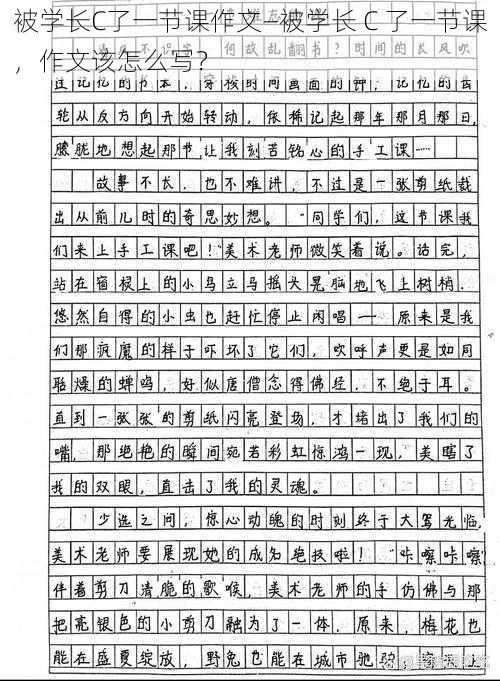 被学长C了一节课作文–被学长 C 了一节课
，作文该怎么写？
清风不识字，何故乱翻书？时间的长风吹
过记忆的书本，穿梭时间画面的钟，记忆的齿
轮从反方向开始转动，依稀记起那年那月那日，
朦胧地想起那节让我刻苦铭心的手工课……
故事不长，也不难讲，不过是一张剪纸载
出从前儿时的奇思妙想。“同学们，这节课我
们来上手工课吧！”美术老师微笑着说。话完，
站在窗棂上的小鸟立马摇头晃脑地飞上树梢，
悠然自得的小虫也赶忙停止闲唱——原来是我
们那疯魔的样子吓坏了它们，欢呼声更是如同
聒燥的蝉鸣，好似唐僧念得佛经，不绝于耳。
直到一张张的剪纸闪亮登场，才堵出了我们的
嘴，那绝艳的瞬间宛若彩虹惊鸿一现，美瞎了
我的双眼，直击了我的灵魂。
少选之间，惊心动魄的时刻终于大驾光临，
美术老师要展现她的成名绝技啦！“咔嚓咔嚓”
伴着剪刀清脆的歌喉，美术老师的手仿佛与那
把亮银色的小剪刀融为了一体，原来，梅花也
能在盛夏绽放，野兔也能在城市驰